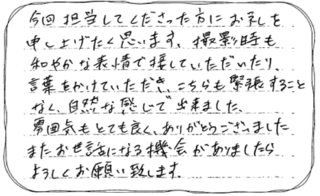 今回担当してくださった方にお礼を
申し上げたく思います。撮影時も
和やかな表情で接していただいたり、
言葉をかけていただき、こちらも緊張すること
なく、自然な感じで出来ました。
雰囲気もとても良く、ありがとうございました
またお世話になる機会がありましたら
よろしくお願い致します。